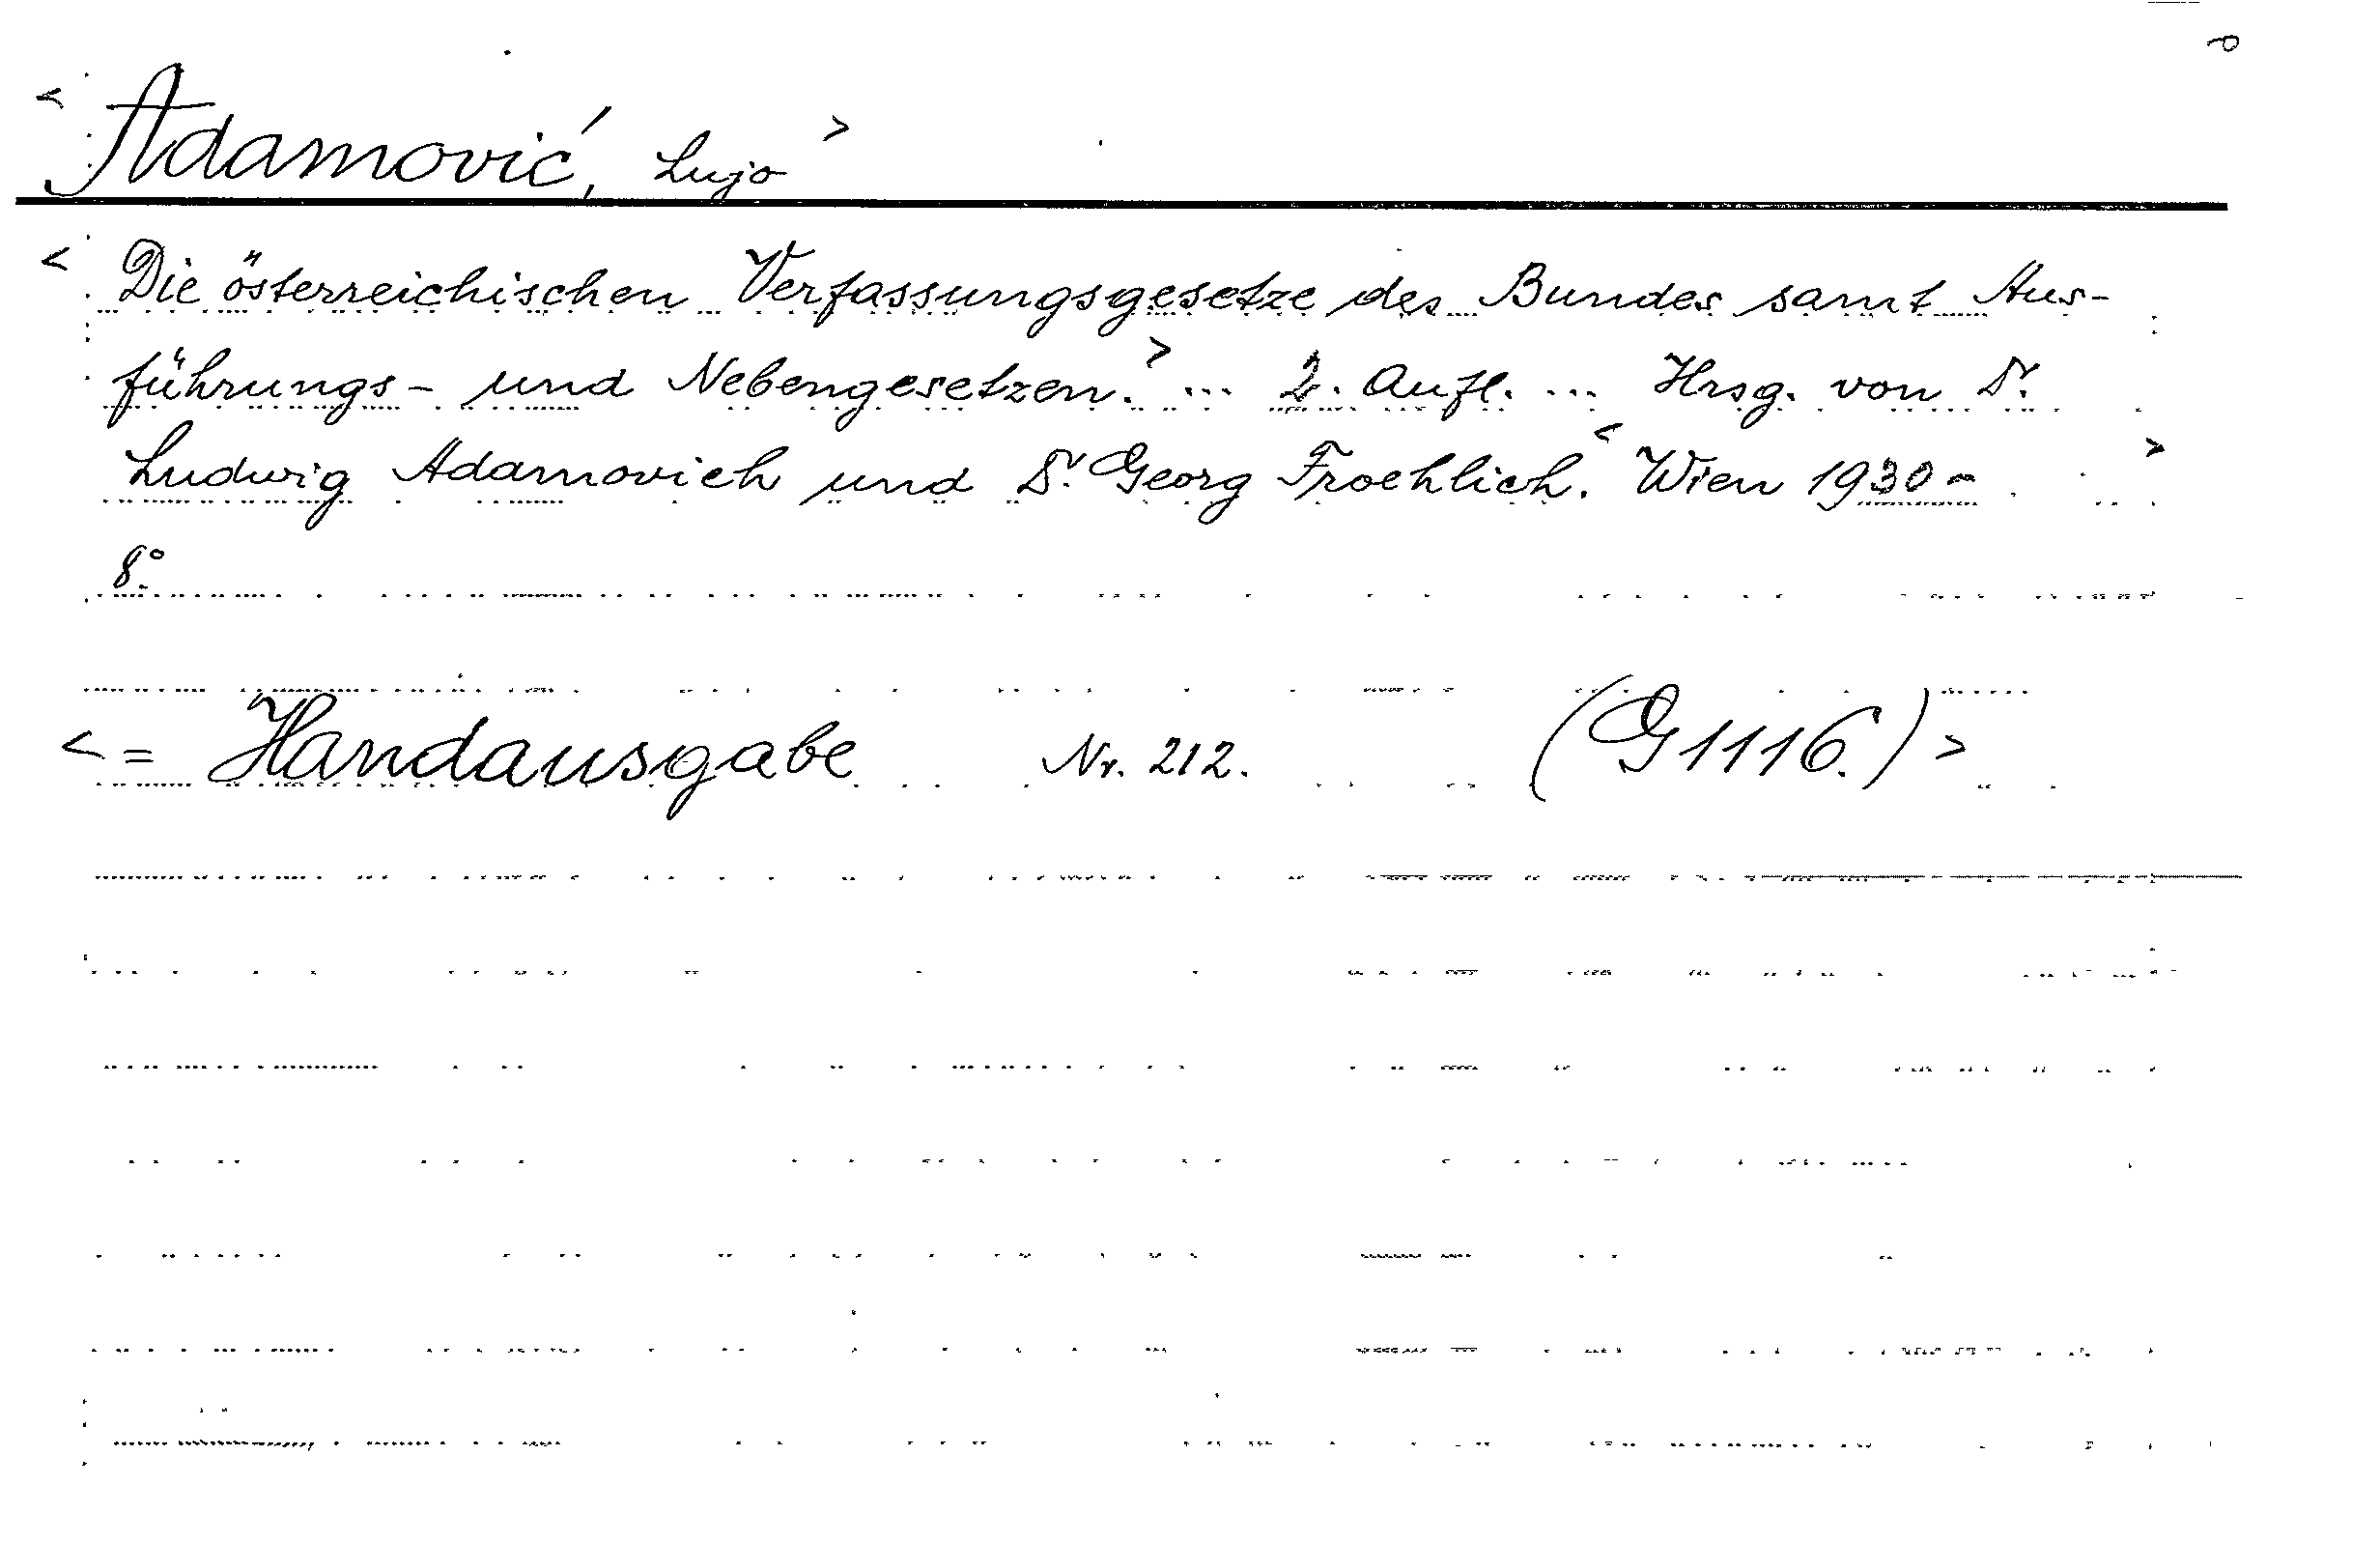 < Adamović, Lujo >
< Die österreichischen Verfassungsgesetze des Bundes samt Aus-
führungs- und Nebengesetzen. > ... 2. Aufl. ... Hrsg. von Dr.
Ludwig Adamovich und Dr. Georg Froehlich. < Wien 1930 - >
8°.
< = Handausgabe Nr. 212. (G 1116.) >